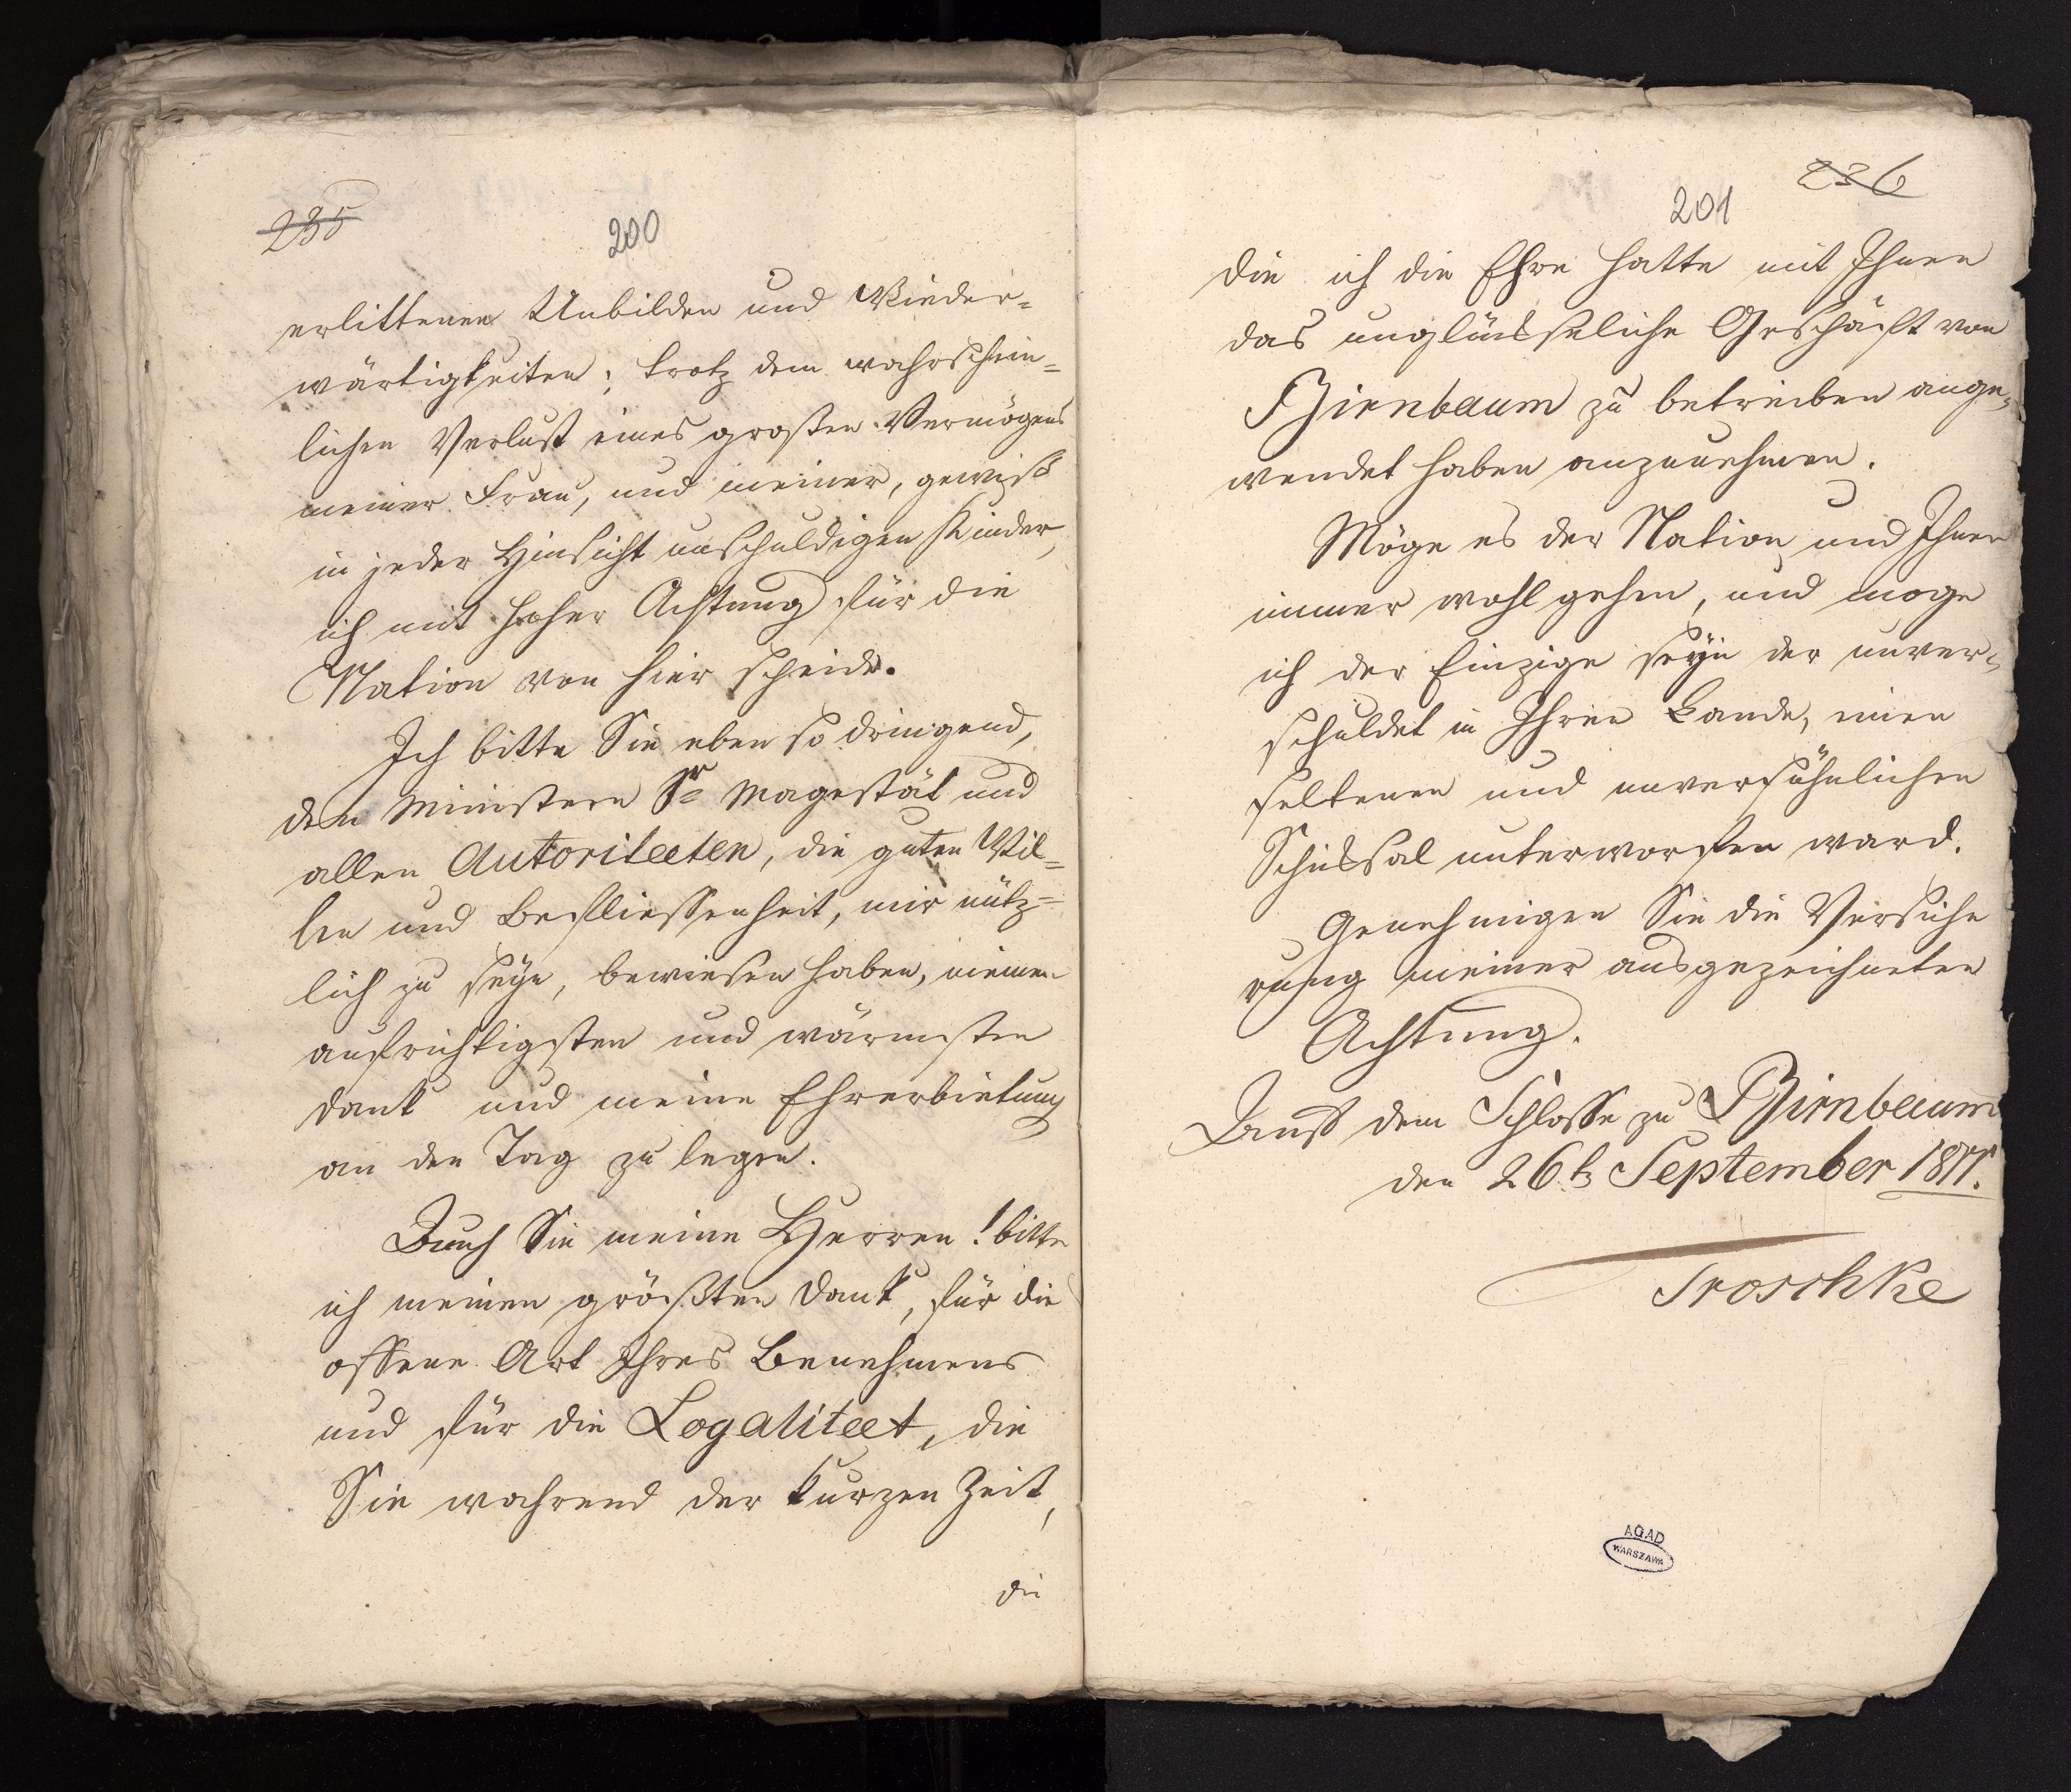 235
200
erlittenen Unbilden und Wieder=
wärtigkeiten; trotz dem wahrschein=
lichen Verlust eines grosten Vermögens
meiner Frau, und meiner, gewiß
in jeder Hinsicht unschuldigen Kinder,
ich mit hoher Achtung für die
Nation von hier scheide.
Ich bitte Sie eben so dringend,
den Ministern Sr Magestät und
allen Autoriteeten, die guten Wil=
len und Befliessenheit, mir nütz=
lich zu seyn, bewiesen haben, meinen
aufrichtigsten und wärmsten
Dank und meine Ehrerbietung
an den Tag zu legen.
Auch Sie meine Herren! bitte
ich meinen größten Dank, für die
offene Art Ihres Benehmens
und für die Logaliteet, die
Sie wahrend der kurzen Zeit,
die
236
201
die ich die Ehre hatte mit Ihnen
das unglückseliche Geschäft von
Birnbaum zu betreiben ange=
wendet haben anzunehmen.
Möge es der Nation und Ihnen
immer wohl gehen, und moge
ich der Einzige seyn der unver=
schuldet in Ihren Lande, einen
seltenen und unversöhnlichen
Schicksal unterworfen ward.
Genehmigen Sie die Versiche
rung meiner ausgezeichneten
Achtung.
Auß dem Schlosse zu Birnbaum
den 26t September 1811.
Troschke
AGAD
WARSZAWA